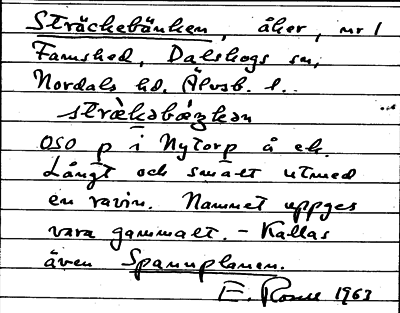 Sträckebänken, åker, nr 1
Famshed, Dalskogs sn,
Nordals hd. Älvsb. l.
strækəbæŋkən
OSO p i Nytorp å ek.
Långt och smalt utmed
en ravin. Namnet uppges
vara gammalt. – Kallas
även Spannplanen.
E. 1963